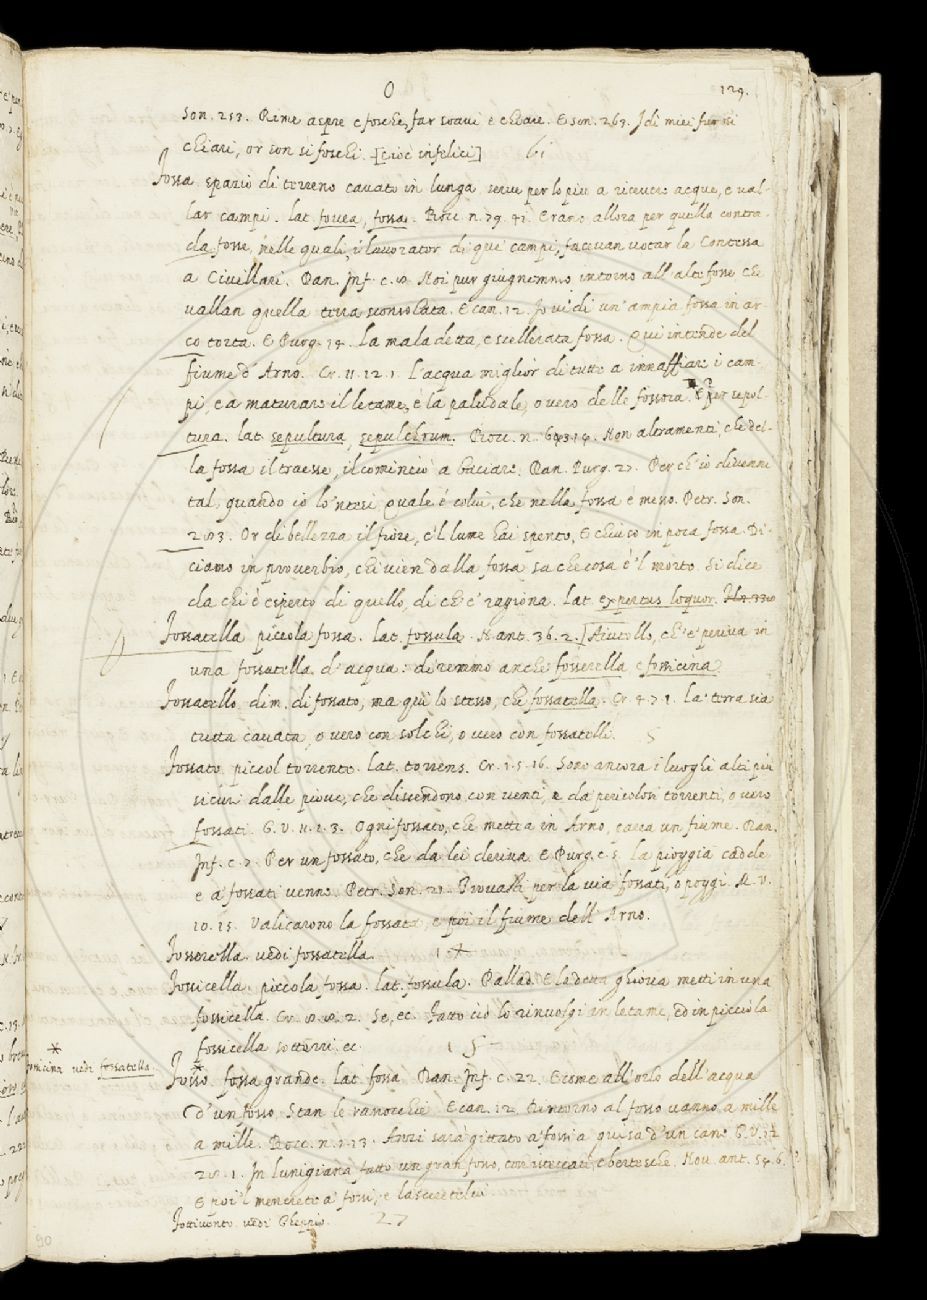 O
129.
Son. 213. Rime aspre e fosche, far soavi e chiare. E son. 263. I dì miei fur sì
chiari, or son sì foschi. [cioè infelici]
61
Fossa. spazio di terreno cavato in lungo serve per lo più a ricever acque, e val-
lar campi. lat. fovea, fossa. Bocc. n. 79. 41. Erano allora per quella contra-
da fosse, nelle quali, i lavorator di que' campi, facevan votar la Contessa
a Civillari. Dan. Inf. c. 8. Noi pur giugnemmo intorno all' alte fosse che
vallan quella terra sconsolata. E can. 12. Io vidi un' ampia fossa in ar-
co torta. E Purg. 14. La maladetta, e scellerata fossa. qui intende del
fiume d' Arno. Cr. 11. 12. 1. L'acqua miglior di tutte a innaffiare i cam-
pi, e a maturare il letame, è la paludale, o vero delle fossora. E per sepol-
tura. lat. sepultura, sepulchrum. Bocc. n. Non altramenti, che del-
la fossa il traesse, il cominciò a baciare. Dan. Purg. 27. Perch' io divenni
tal, quando lo 'ntesi, quale è colui, che nella fossa è messo. Petr. Son.
283. Or di bellezza il fiore, e 'l lume hai spento, E chiuso in poca fossa. Di-
ciamo in proverbio, chi vien dalla fossa sa che cosa è 'l morto. Si dice
da chi è esperto di quello, di che e' ragiona. Lat. expertus loquor.
Fossatella piccola fossa. lat. fossula. N. ant. 36. 2. [Aiutollo, ch' e' periva in
una fossatella d' acqua. diremmo anche fosserella e fossicina.
Fossatello. dim. di fossato, ma quì lo stesso, che fossatella. Cr. 4. 7. 1. La terra sia
tutta cavata, o vero con solchi, o vero con fossatelli.
5
Fossato. piccol torrente. Lat. torrens. Cr. 1. 5. 16. Sono ancora i luoghi alti più
sicuri dalle piove, che discendono con venti, e da pericolosi torrenti, o vero
fossati. G. V. 11. 2. 3. Ogni fossato, che mettea in Arno, parea un fiume. Dan.
Inf. c. 7. Per un fossato, che da lei deriva. E Purg. c. 5. La pioggia cadde
e a' fossati venne. Petr. Son. 21. per la via fossati, o poggi. M. V.
10. 15. Valicarono la fossata, e poi il fiume dell' Arno.
Fosserella. vedi fossatella.
1 *
Fossicella. piccola fossa. lat. fossula. Pallad. E ladetta ghiova metti in una
fossicella. Cr. 2. Se, ec. Fatto ciò lo rinvolgi in letame, ed in picciola
fossicella sotterri ec.
1 5
*
fossicina vedi fossatella.
Fosso. fossa grande. Lat. fossa. Dan. Inf. c. 22. E come all' orlo dell' acqua
d' un fosso. Stan le ranocchie. E can. 12. Dintorno al fosso vanno a mille
a mille. Bocc. n. 1. 13. Anzi sarà gittato a' fossi a guisa d' un cane. G. V.
1. In Lunigiana fatto un gran fosso, con isteccati, e bertesche. Nov. ant. 54. 6.
E noi 'l menerete a' fossi, e lascieretelvi
Fottivento. vedi Gheppio.
27
90